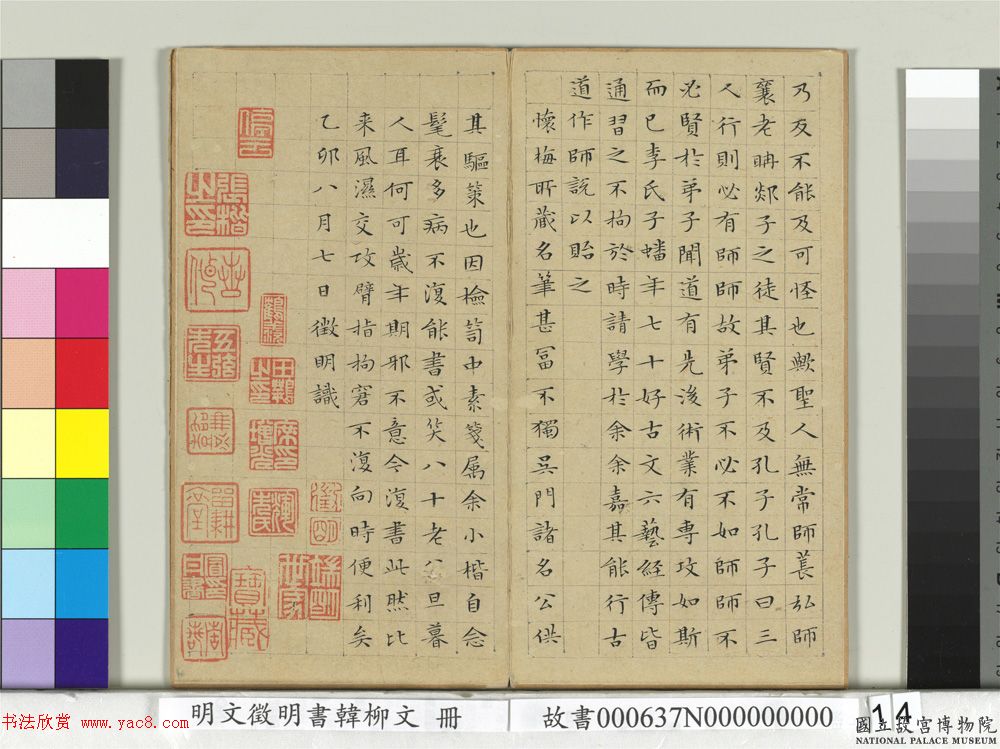 乃反不能及可怪也歟聖人無常師萇弘師
襄老聃郯子之徒其賢不及孔子孔子曰三
人行則必有師師故弟子不必不如師師不
必賢於弟子聞道有先後術業有專攻如斯
而已李氏子蟠年七十好古文六藝經傳皆
通習之不拘於時請學於余余嘉其能行古
道作師說以貽之
懷梅所藏名筆甚富不獨吳門諸名公供
其驅策也因檢笥中素箋属余小楷自念
髦衰多病不復能書或笑八十老公旦暮
人耳何可歲年期邪不意今復書此然比
来風濕交攻臂指拘窘不復向時便利矣
乙卯八月七日徵明識
張楷之印
五弦先生
徵明
寶藏
明文徵明書韓柳文 冊
故書000637N000000000
14
書法欣赏 www.yac8.com
國立故宮博物院
NATIONAL PALACE MUSEUM